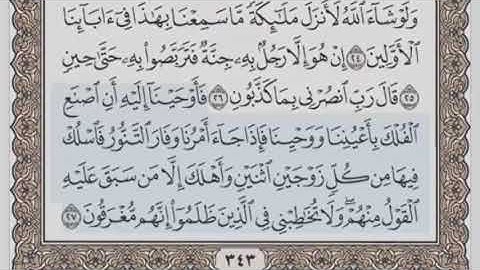 وَلَوْ شَآءَ ٱللَّهُ لَأَنزَلَ مَلَـٰٓئِكَةً مَّا سَمِعْنَا بِهَـٰذَا فِىٓ ءَابَآئِنَا
ٱلْأَوَّلِينَ ٢٤ إِنْ هُوَ إِلَّا رَجُلٌۢ بِهِۦ جِنَّةٌ فَتَرَبَّصُوا۟ بِهِۦ حَتَّىٰ حِينٍ
٢٥ قَالَ رَبِّ ٱنصُرْنِى بِمَا كَذَّبُونِ ٢٦ فَأَوْحَيْنَآ إِلَيْهِ أَنِ ٱصْنَعِ
ٱلْفُلْكَ بِأَعْيُنِنَا وَوَحْيِنَا فَإِذَا جَآءَ أَمْرُنَا وَفَارَ ٱلتَّنُّورُ فَٱسْلُكْ
فِيهَا مِن كُلٍّ زَوْجَيْنِ ٱثْنَيْنِ وَأَهْلَكَ إِلَّا مَن سَبَقَ عَلَيْهِ
ٱلْقَوْلُ مِنْهُمْ ۖ وَلَا تُخَـٰطِبْنِى فِى ٱلَّذِينَ ظَلَمُوٓا۟ إِنَّهُم مُّغْرَقُونَ ٢٧
٣٤٣